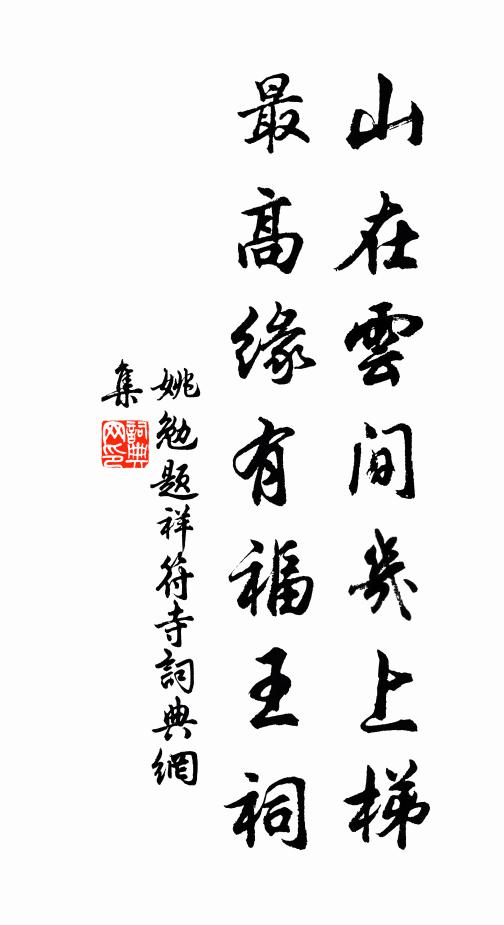 山在雲間幾上梯
最高緣有福王祠
姚勉題祥符寺詞典網
集
詞典網印